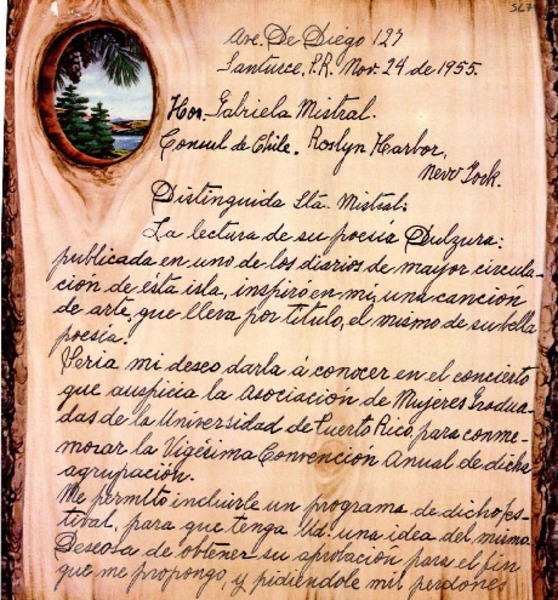 Ave. De Diego 127
Santurce, P.R. Nov. 24 de 1955.
Hon. Gabriela Mistral.
Consul de Chile. Roslyn Harbor,
New York.
Distinguida Sta. Mistral:
La lectura de su poesia Dulzura:
publicada en uno de los diarios de mayor circula-
ción de ésta isla, inspiró en mi, una canción
de arte, que lleva por titulo, el mismo de su bella
poesia.
Seria mi deseo darla á conocer en el concierto
que auspicia la Asociación de Mujeres Gradua-
das de la Universidad de Puerto Rico, para conme-
morar la Vigésima Convención Anual de dicha
agrupación.
Me permito incluirle un programa de dicho fes-
tival, para que tenga Ud. una idea del mismo.
Deseosa de obtener su aprobación para el fin
que me propongo, y pidiendole mil perdones